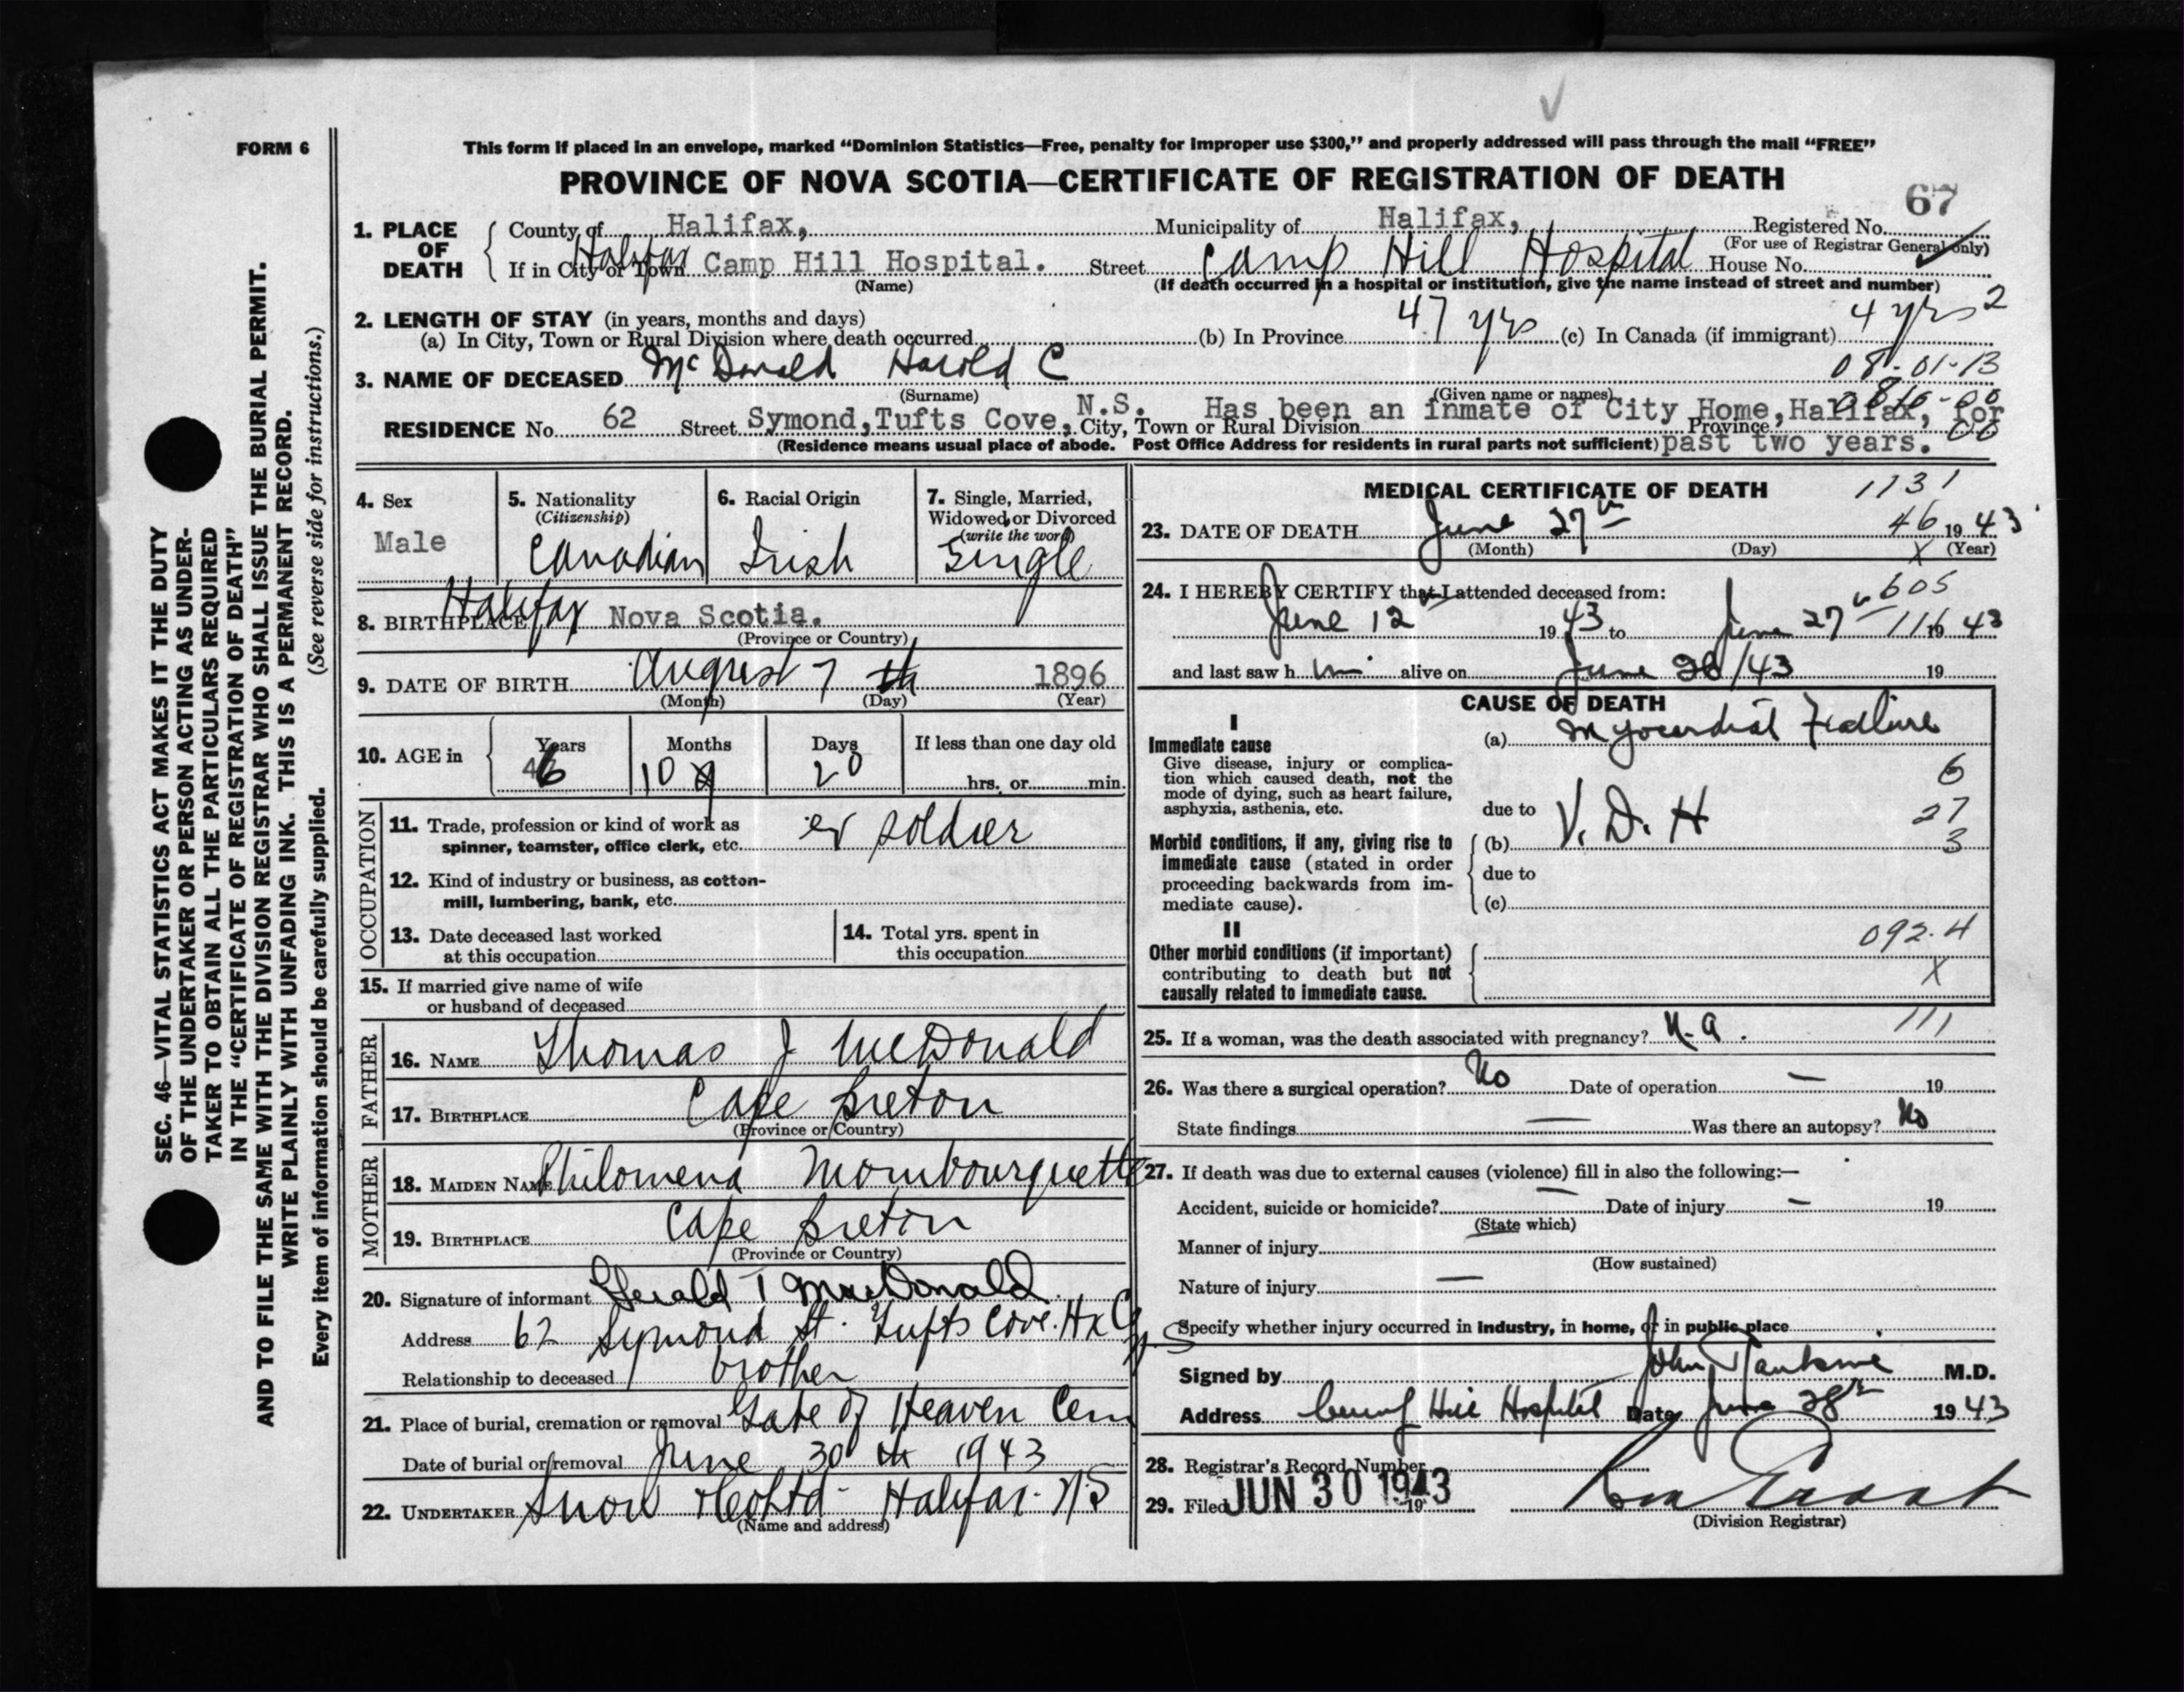 FORM 6
This form if placed in an envelope, marked “Dominion Statistics—Free, penalty for improper use $300,” and properly addressed will pass through the mail “FREE”
PROVINCE OF NOVA SCOTIA—CERTIFICATE OF REGISTRATION OF DEATH
67
1. PLACE OF DEATH
County of Halifax, Municipality of Halifax, Registered No.
(For use of Registrar General only)
If in City or Town Halifax Camp Hill Hospital. Street Camp Hill Hospital House No.
(Name) (If death occurred in a hospital or institution, give the name instead of street and number)
2. LENGTH OF STAY (in years, months and days)
(a) In City, Town or Rural Division where death occurred (b) In Province 47 yrs (c) In Canada (if immigrant) 4 yrs 2
08-01-13
3. NAME OF DECEASED McDonald Harold C
(Surname) (Given name or names)
RESIDENCE No. 62 Street Symond, Tufts Cove, N.S. City, Town or Rural Division Has been an inmate of City Home, Halifax, for Province
(Residence means usual place of abode. Post Office Address for residents in rural parts not sufficient) past two years.
4. Sex
Male
5. Nationality
(Citizenship)
Canadian
6. Racial Origin
Irish
7. Single, Married,
Widowed, or Divorced
(write the word)
Single
8. BIRTHPLACE Halifax Nova Scotia.
(Province or Country)
9. DATE OF BIRTH August 7 th 1896
(Month) (Day) (Year)
10. AGE in Years 46 Months 10 Days 20 If less than one day old
hrs. or min.
OCCUPATION
11. Trade, profession or kind of work as
spinner, teamster, office clerk, etc. ex soldier
12. Kind of industry or business, as cotton-
mill, lumbering, bank, etc.
13. Date deceased last worked
at this occupation
14. Total yrs. spent in
this occupation
15. If married give name of wife
or husband of deceased
FATHER
16. NAME Thomas J McDonald
17. BIRTHPLACE Cape Breton
(Province or Country)
MOTHER
18. MAIDEN NAME Philomena Mombourquette
19. BIRTHPLACE Cape Breton
(Province or Country)
20. Signature of informant Gerald T MacDonald
Address 62 Symond St. Tufts Cove. Hx Co N.S
Relationship to deceased brother
21. Place of burial, cremation or removal Gate of Heaven Cem
Date of burial or removal June 30 th 1943
22. UNDERTAKER Snow & Co Ltd - Halifax. NS
(Name and address)
MEDICAL CERTIFICATE OF DEATH 1131
23. DATE OF DEATH June 27th 46 1943
(Month) (Day) X (Year)
24. I HEREBY CERTIFY that I attended deceased from:
605
June 12 1943 to June 27 116 1943
and last saw him alive on June 26/43 19
CAUSE OF DEATH
I
Immediate cause
Give disease, injury or complica-
tion which caused death, not the
mode of dying, such as heart failure,
asphyxia, asthenia, etc.
(a) Myocardial Failure
6
due to
27
Morbid conditions, if any, giving rise to
immediate cause (stated in order
proceeding backwards from im-
mediate cause).
(b) V. D. H
3
due to
(c)
II
Other morbid conditions (if important)
contributing to death but not
causally related to immediate cause.
092.4
X
111
25. If a woman, was the death associated with pregnancy? N.A.
26. Was there a surgical operation? No Date of operation — 19
State findings — Was there an autopsy? No
27. If death was due to external causes (violence) fill in also the following:—
Accident, suicide or homicide? — Date of injury — 19
(State which)
Manner of injury
(How sustained)
Nature of injury —
Specify whether injury occurred in industry, in home, or in public place
Signed by John Rankine M.D.
Address Camp Hill Hospital Date June 28th 1943
28. Registrar's Record Number
29. Filed JUN 30 1943 19
(Division Registrar)
SEC. 46—VITAL STATISTICS ACT MAKES IT THE DUTY
OF THE UNDERTAKER OR PERSON ACTING AS UNDER-
TAKER TO OBTAIN ALL THE PARTICULARS REQUIRED
IN THE “CERTIFICATE OF REGISTRATION OF DEATH”
AND TO FILE THE SAME WITH THE DIVISION REGISTRAR WHO SHALL ISSUE THE BURIAL PERMIT.
WRITE PLAINLY WITH UNFADING INK. THIS IS A PERMANENT RECORD.
Every item of information should be carefully supplied. (See reverse side for instructions.)